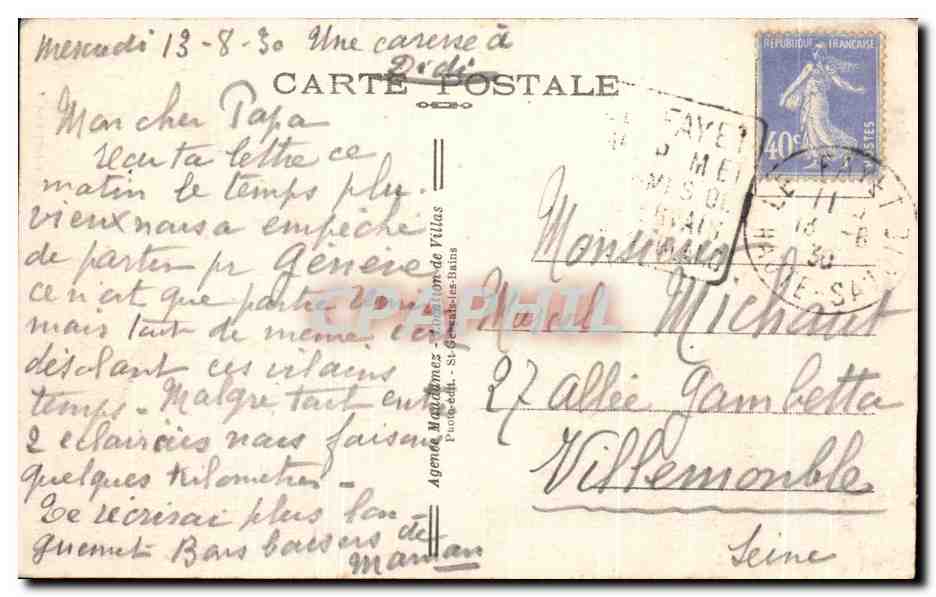 Mercredi 13-8-30 Une caresse à
Didi
CARTE POSTALE
Mon cher Papa
reçu ta lettre ce
matin le temps plu-
vieux nous a empêché
de partir pr Genève
ce n'est que partie remise
mais tout de même c'est
désolant ces vilains
temps - Malgré tout entre
2 éclaircies nous faisons
quelques kilomètres -
Te récrirai plus lon-
guement Bons baisers de
Maman
Agence Maudamez - Location de Villas
Photo-édit. - St-Gervais-les-Bains
REPUBLIQUE FRANÇAISE
40c
POSTES
FAYET
LE FAYET
11
13 -8
30
HTE-SAVOIE
Monsieur
Marcel Michaut
27 allée Gambetta
Villemomble
Seine
CPAPHIL